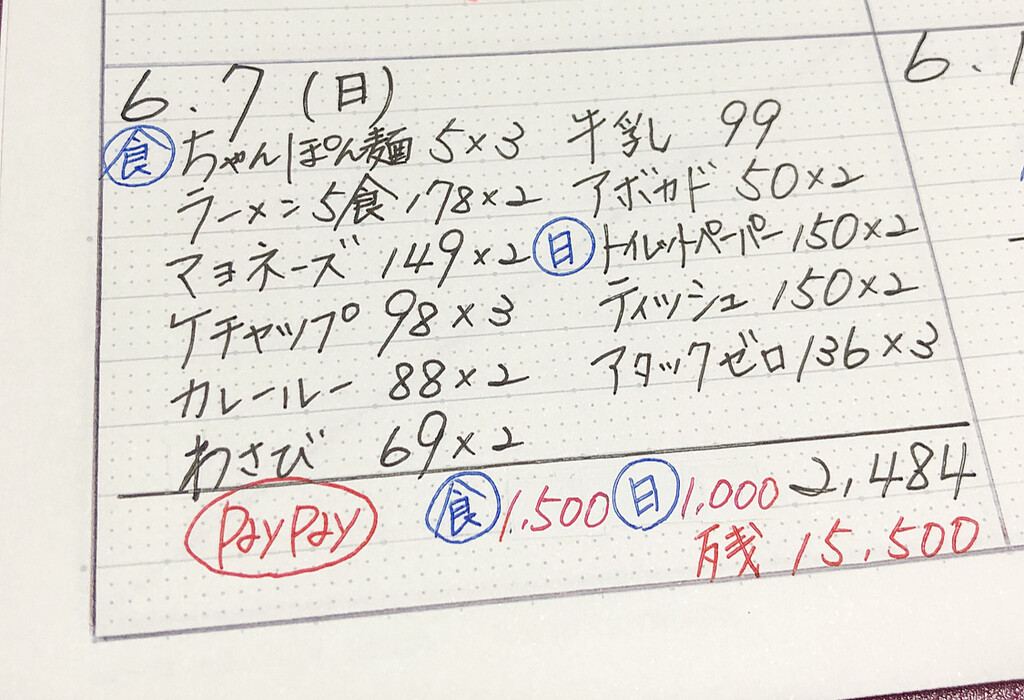 6.7 (日)
食 ちゃんぽん麺 5×3
ラーメン5食 178×2
マヨネーズ 149×2
ケチャップ 98×3
カレールー 88×2
わさび 69×2
牛乳 99
アボカド 50×2
日 トイレットペーパー 150×2
ティッシュ 150×2
アタックゼロ 136×3
2,484
PayPay 食 1,500 日 1,000
残 15,500
6.1